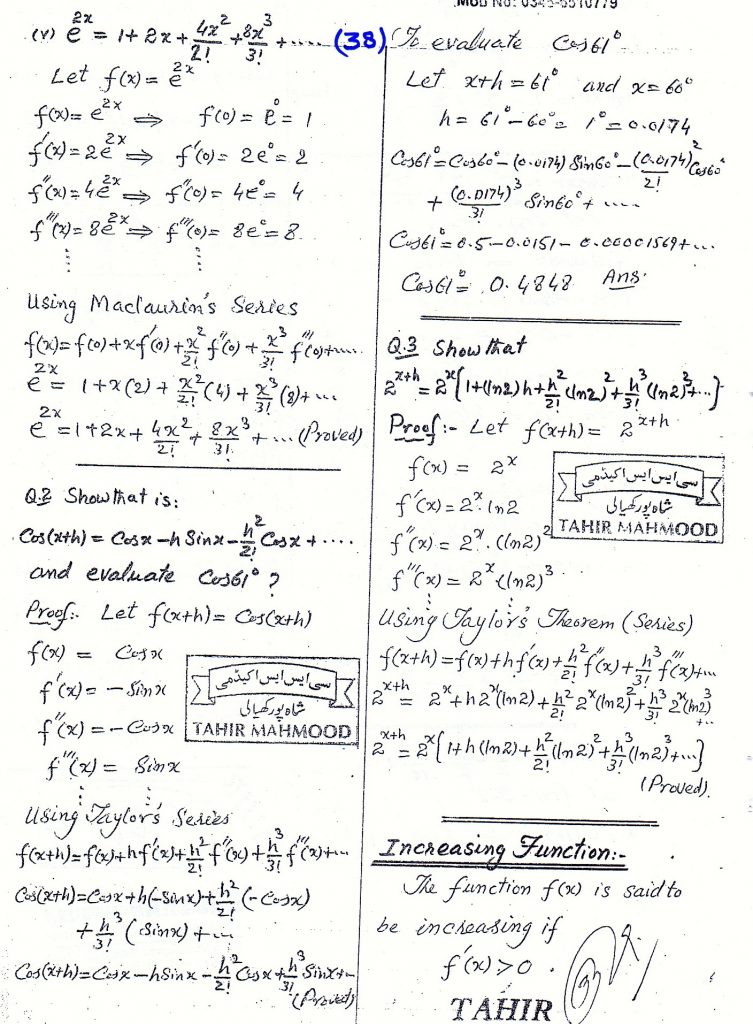 MOB NO: 0345-5510779
(v) e^{2x} = 1 + 2x + 4x²/2! + 8x³/3! + .....
Let f(x) = e^{2x}
f(x) = e^{2x} ⇒ f(0) = e⁰ = 1
f'(x) = 2e^{2x} ⇒ f'(0) = 2e⁰ = 2
f''(x) = 4e^{2x} ⇒ f''(0) = 4e⁰ = 4
f'''(x) = 8e^{2x} ⇒ f'''(0) = 8e⁰ = 8.
⋮ ⋮
Using Maclaurin's Series
f(x) = f(0) + xf'(0) + x²/2! f''(0) + x³/3! f'''(0) + .....
e^{2x} = 1 + x(2) + x²/2! (4) + x³/3! (8) + ...
e^{2x} = 1 + 2x + 4x²/2! + 8x³/3! + ... (Proved)
Q.2 Show that is:
Cos(x+h) = Cosx - h Sinx - h²/2! Cosx + ....
and evaluate Cos61° ?
Proof:. Let f(x+h) = Cos(x+h)
f(x) = Cosx
f'(x) = - Sinx
f''(x) = - Cosx
f'''(x) = Sinx
⋮ ⋮
سی ایس ایس اکیڈمی
شاہ پور کھیالی
TAHIR MAHMOOD
Using Taylor's Series
f(x+h) = f(x) + hf'(x) + h²/2! f''(x) + h³/3! f'''(x) + .....
Cos(x+h) = Cosx + h(-Sinx) + h²/2! (-Cosx)
+ h³/3! (Sinx) + ...
Cos(x+h) = Cosx - hSinx - h²/2! Cosx + h³/3! Sinx + ...
(Proved)
(38)
To evaluate Cos61°
Let x+h = 61° and x = 60°
h = 61° - 60° = 1° = 0.0174
Cos61° = Cos60° - (0.0174) Sin60° - (0.0174)²/2! Cos60°
+ (0.0174)³/3! Sin60° + .....
Cos61° = 0.5 - 0.0151 - 0.00001569 + ...
Cos61° = 0.4848 Ans.
Q.3 Show that
2^{x+h} = 2^x [1 + (ln2)h + h²/2! (ln2)² + h³/3! (ln2)³ + ...]
Proof:- Let f(x+h) = 2^{x+h}
f(x) = 2^x
f'(x) = 2^x. ln2
f''(x) = 2^x. (ln2)²
f'''(x) = 2^x (ln2)³
⋮ ⋮
سی ایس ایس اکیڈمی
شاہ پور کھیالی
TAHIR MAHMOOD
Using Taylor's Theorem (Series)
f(x+h) = f(x) + hf'(x) + h²/2! f''(x) + h³/3! f'''(x) + ...
2^{x+h} = 2^x + h2^x(ln2) + h²/2! 2^x(ln2)² + h³/3! 2^x(ln2)³ + ..
2^{x+h} = 2^x [1 + h(ln2) + h²/2! (ln2)² + h³/3! (ln2)³ + ...]
(Proved).
Increasing Function:-
The function f(x) is said to
be increasing if
f'(x) > 0.
TAHIR